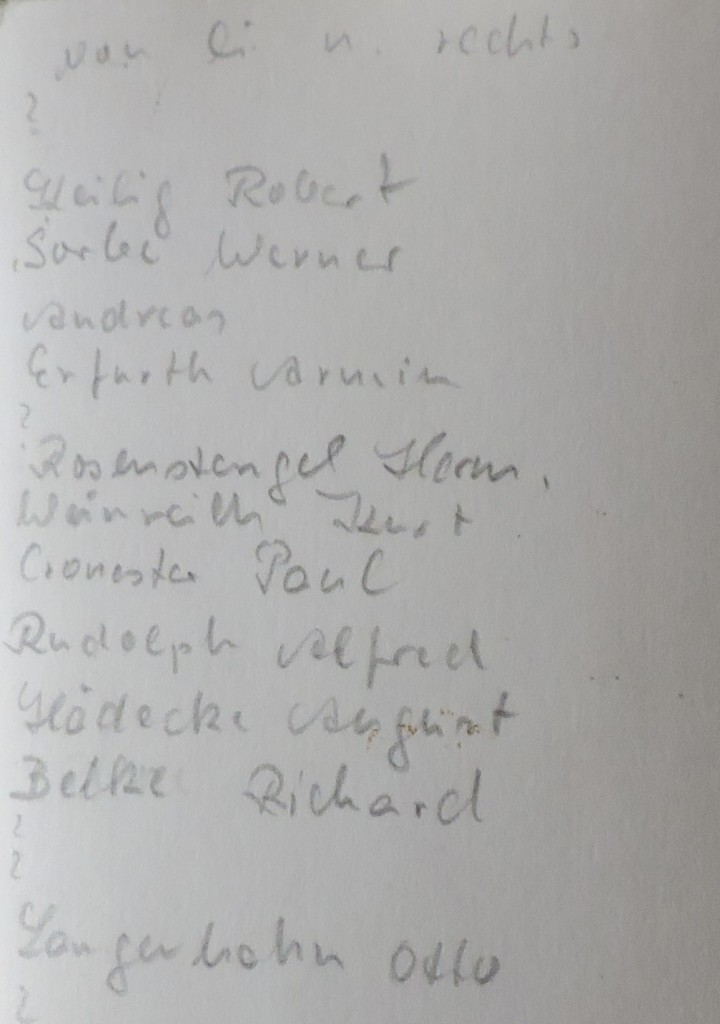 von li. n. rechts
?
Heilig Robert
Sorbe Werner
Andreas
Erfurth Armin
?
Rosenstengel Herm.
Weinreich Kurt
Paul
Rudolph Alfred
Hödecke August
Belke Richard
?
?
Langerhahn Otto
?